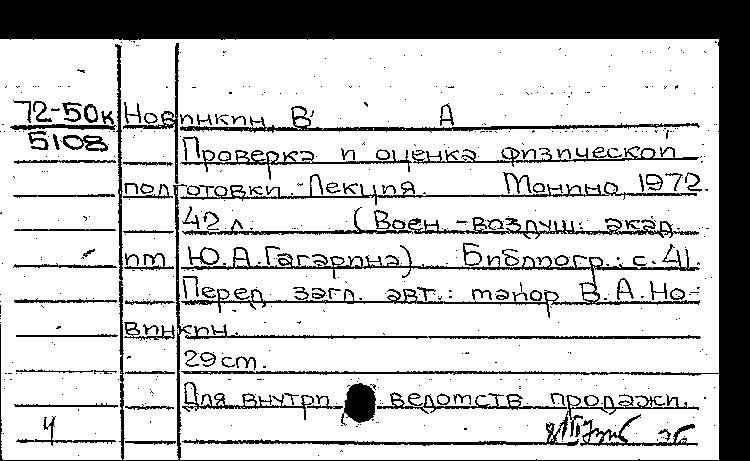 72-50к Новинкин, В. А
5108 Проверка и оценка физической
подготовки. Лекция. Монино, 1972.
42 л. (Воен.-воздуш. акад.
им Ю.А.Гагарина). Библиогр.: с.41.
Перед загл. авт.: майор В.А.Но-
винкин.
29 ст.
Для внутри ведомств продажи.
4